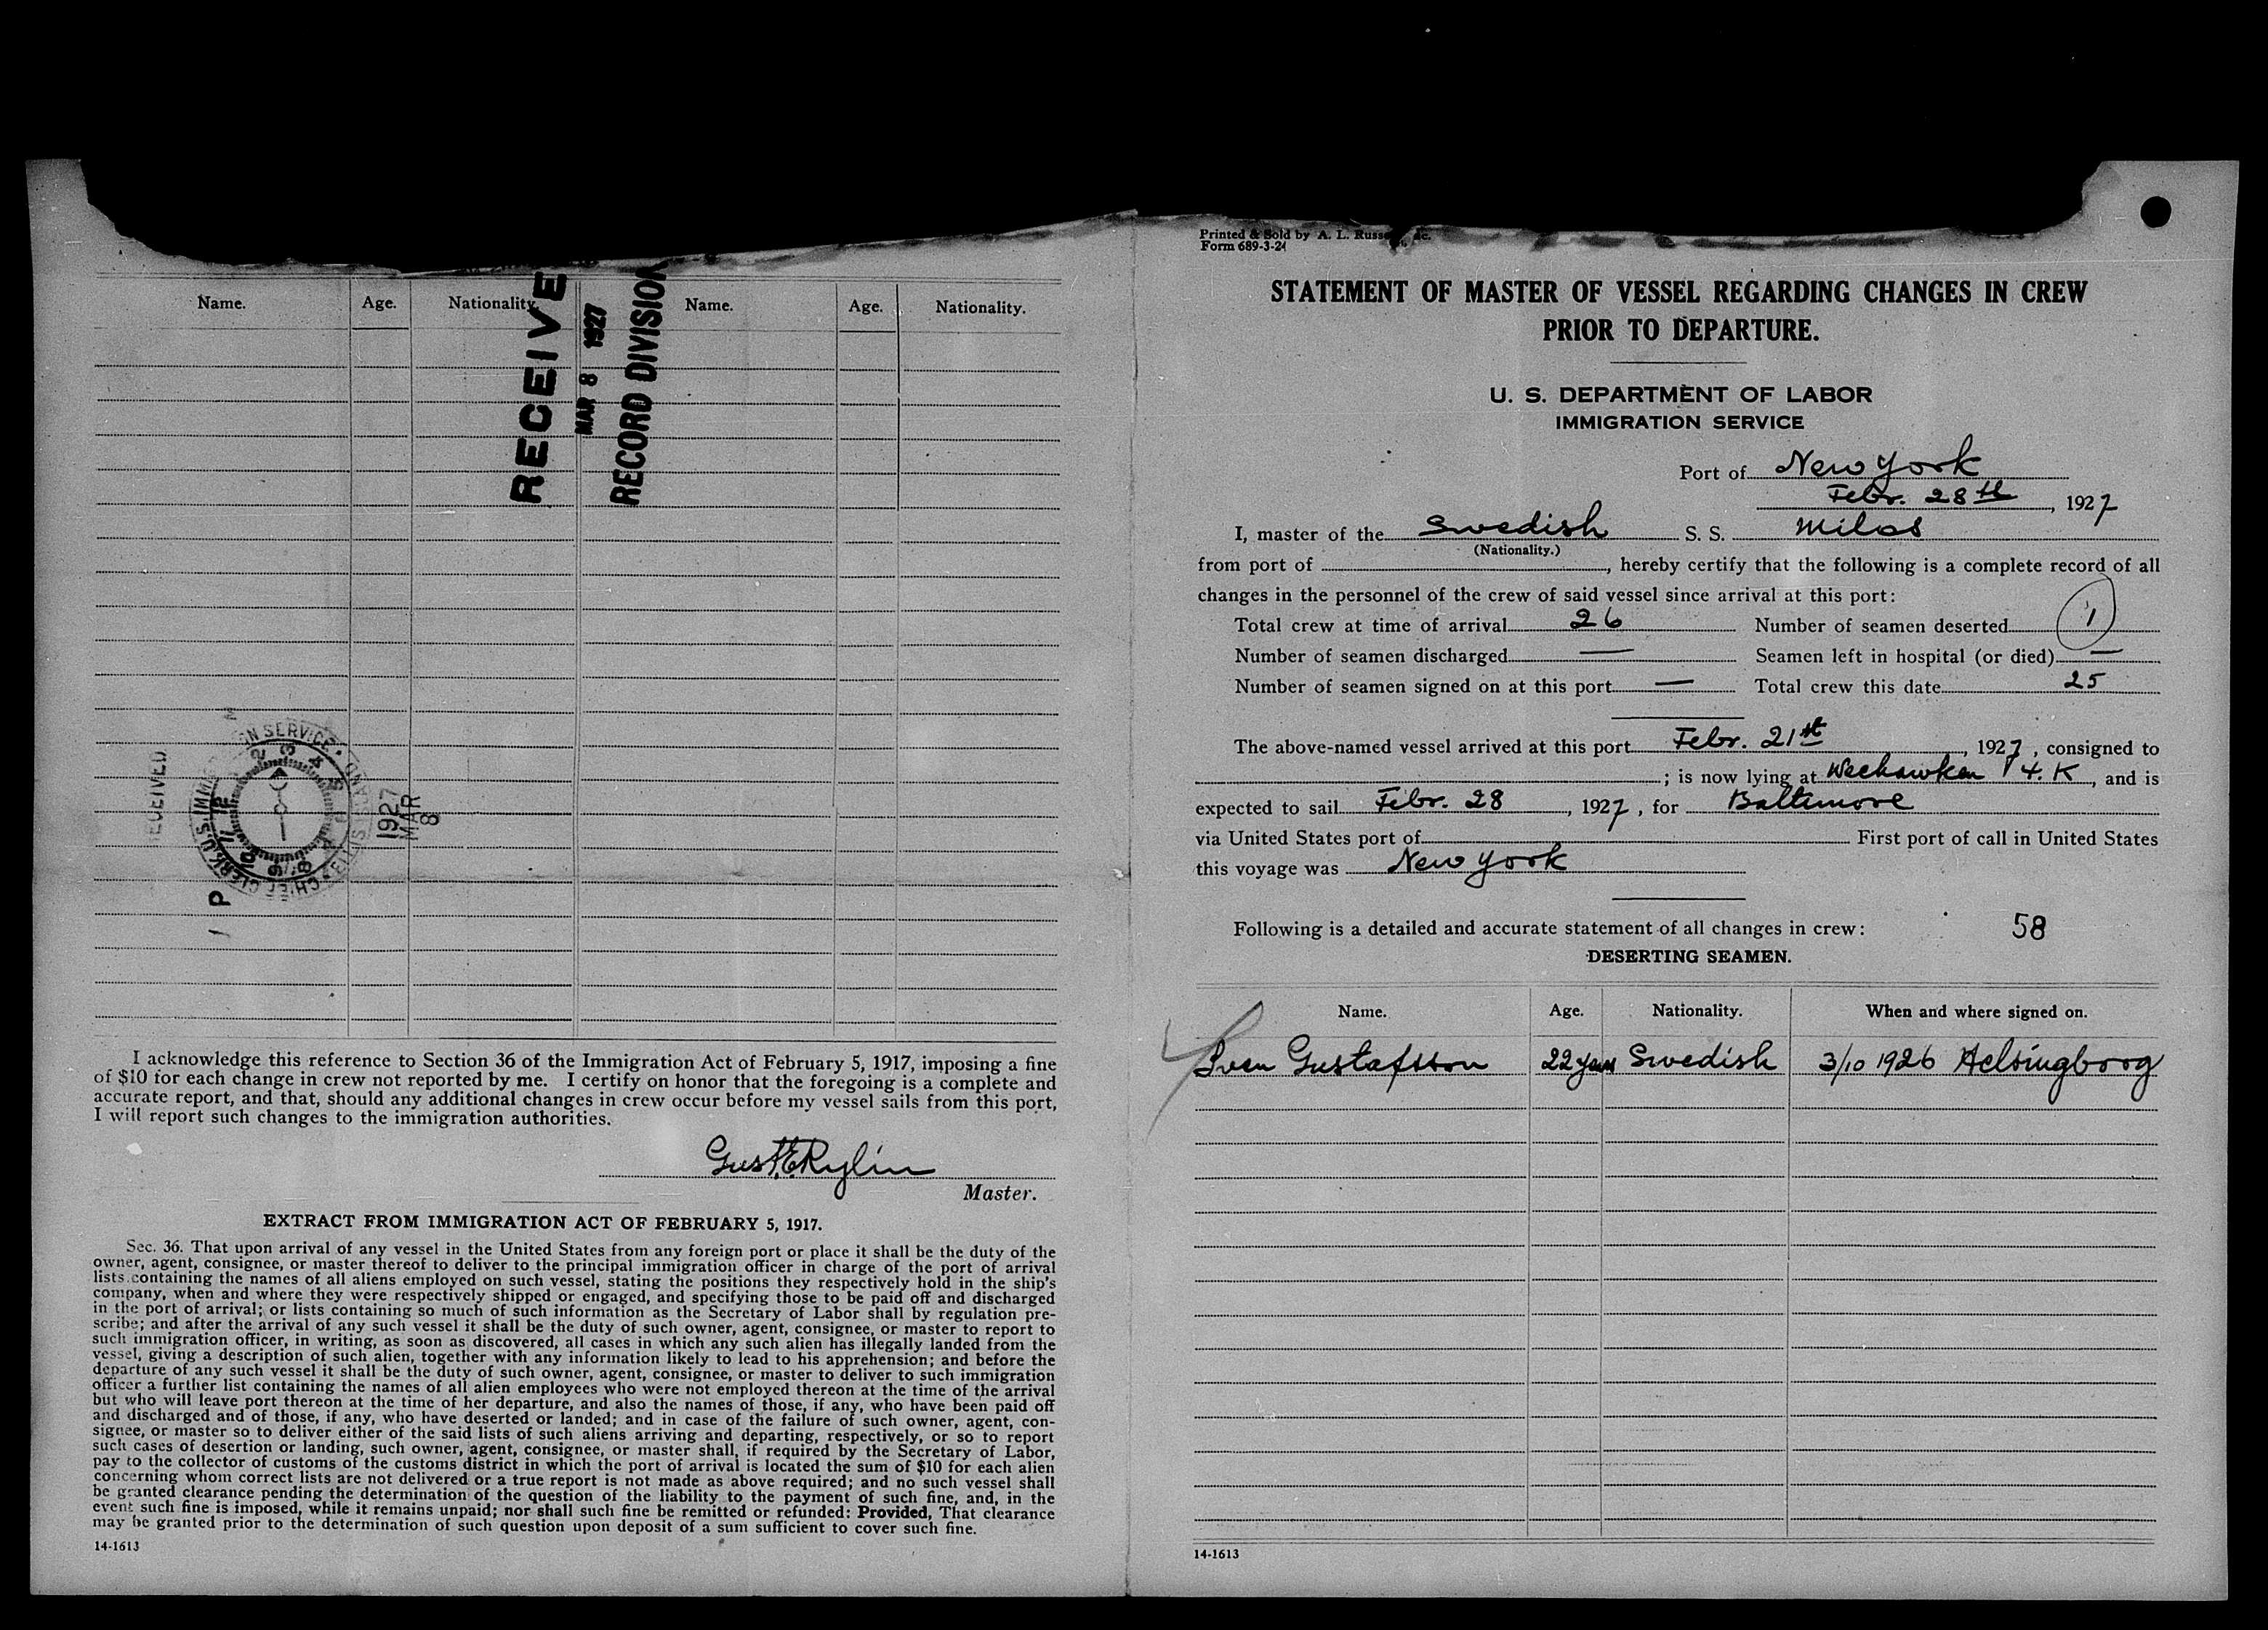 Name. Age. Nationality. Name. Age. Nationality.
RECEIVE
MAR 8 1927
RECORD DIVISION
RECEIVED
1927
MAR
8
I acknowledge this reference to Section 36 of the Immigration Act of February 5, 1917, imposing a fine
of $10 for each change in crew not reported by me. I certify on honor that the foregoing is a complete and
accurate report, and that, should any additional changes in crew occur before my vessel sails from this port,
I will report such changes to the immigration authorities.
Gust E Rylin
Master.
EXTRACT FROM IMMIGRATION ACT OF FEBRUARY 5, 1917.
Sec. 36. That upon arrival of any vessel in the United States from any foreign port or place it shall be the duty of the
owner, agent, consignee, or master thereof to deliver to the principal immigration officer in charge of the port of arrival
lists containing the names of all aliens employed on such vessel, stating the positions they respectively hold in the ship's
company, when and where they were respectively shipped or engaged, and specifying those to be paid off and discharged
in the port of arrival; or lists containing so much of such information as the Secretary of Labor shall by regulation pre-
scribe; and after the arrival of any such vessel it shall be the duty of such owner, agent, consignee, or master to report to
such immigration officer, in writing, as soon as discovered, all cases in which any such alien has illegally landed from the
vessel, giving a description of such alien, together with any information likely to lead to his apprehension; and before the
departure of any such vessel it shall be the duty of such owner, agent, consignee, or master to deliver to such immigration
officer a further list containing the names of all alien employees who were not employed thereon at the time of the arrival
but who will leave port thereon at the time of her departure, and also the names of those, if any, who have been paid off
and discharged and of those, if any, who have deserted or landed; and in case of the failure of such owner, agent, con-
signee, or master so to deliver either of the said lists of such aliens arriving and departing, respectively, or so to report
such cases of desertion or landing, such owner, agent, consignee, or master shall, if required by the Secretary of Labor,
pay to the collector of customs of the customs district in which the port of arrival is located the sum of $10 for each alien
concerning whom correct lists are not delivered or a true report is not made as above required; and no such vessel shall
be granted clearance pending the determination of the question of the liability to the payment of such fine, and, in the
event such fine is imposed, while it remains unpaid; nor shall such fine be remitted or refunded: Provided, That clearance
may be granted prior to the determination of such question upon deposit of a sum sufficient to cover such fine.
14-1613
Printed & Sold by A. L.
Form 689-3-24
STATEMENT OF MASTER OF VESSEL REGARDING CHANGES IN CREW
PRIOR TO DEPARTURE.
U. S. DEPARTMENT OF LABOR
IMMIGRATION SERVICE
Port of New York
Febr. 28th, 1927
I, master of the Swedish S. S. Milos
(Nationality.)
from port of , hereby certify that the following is a complete record of all
changes in the personnel of the crew of said vessel since arrival at this port:
Total crew at time of arrival 26 Number of seamen deserted 1
Number of seamen discharged — Seamen left in hospital (or died) —
Number of seamen signed on at this port — Total crew this date 25
The above-named vessel arrived at this port Febr. 21st, 1927, consigned to
; is now lying at Weehawken , and is
expected to sail Febr. 28, 1927, for Baltimore
via United States port of First port of call in United States
this voyage was New York
Following is a detailed and accurate statement of all changes in crew: 58
DESERTING SEAMEN.
Name. Age. Nationality. When and where signed on.
Sven Gustafsson 22 years Swedish 3/10 1926 Helsingborg
14-1613